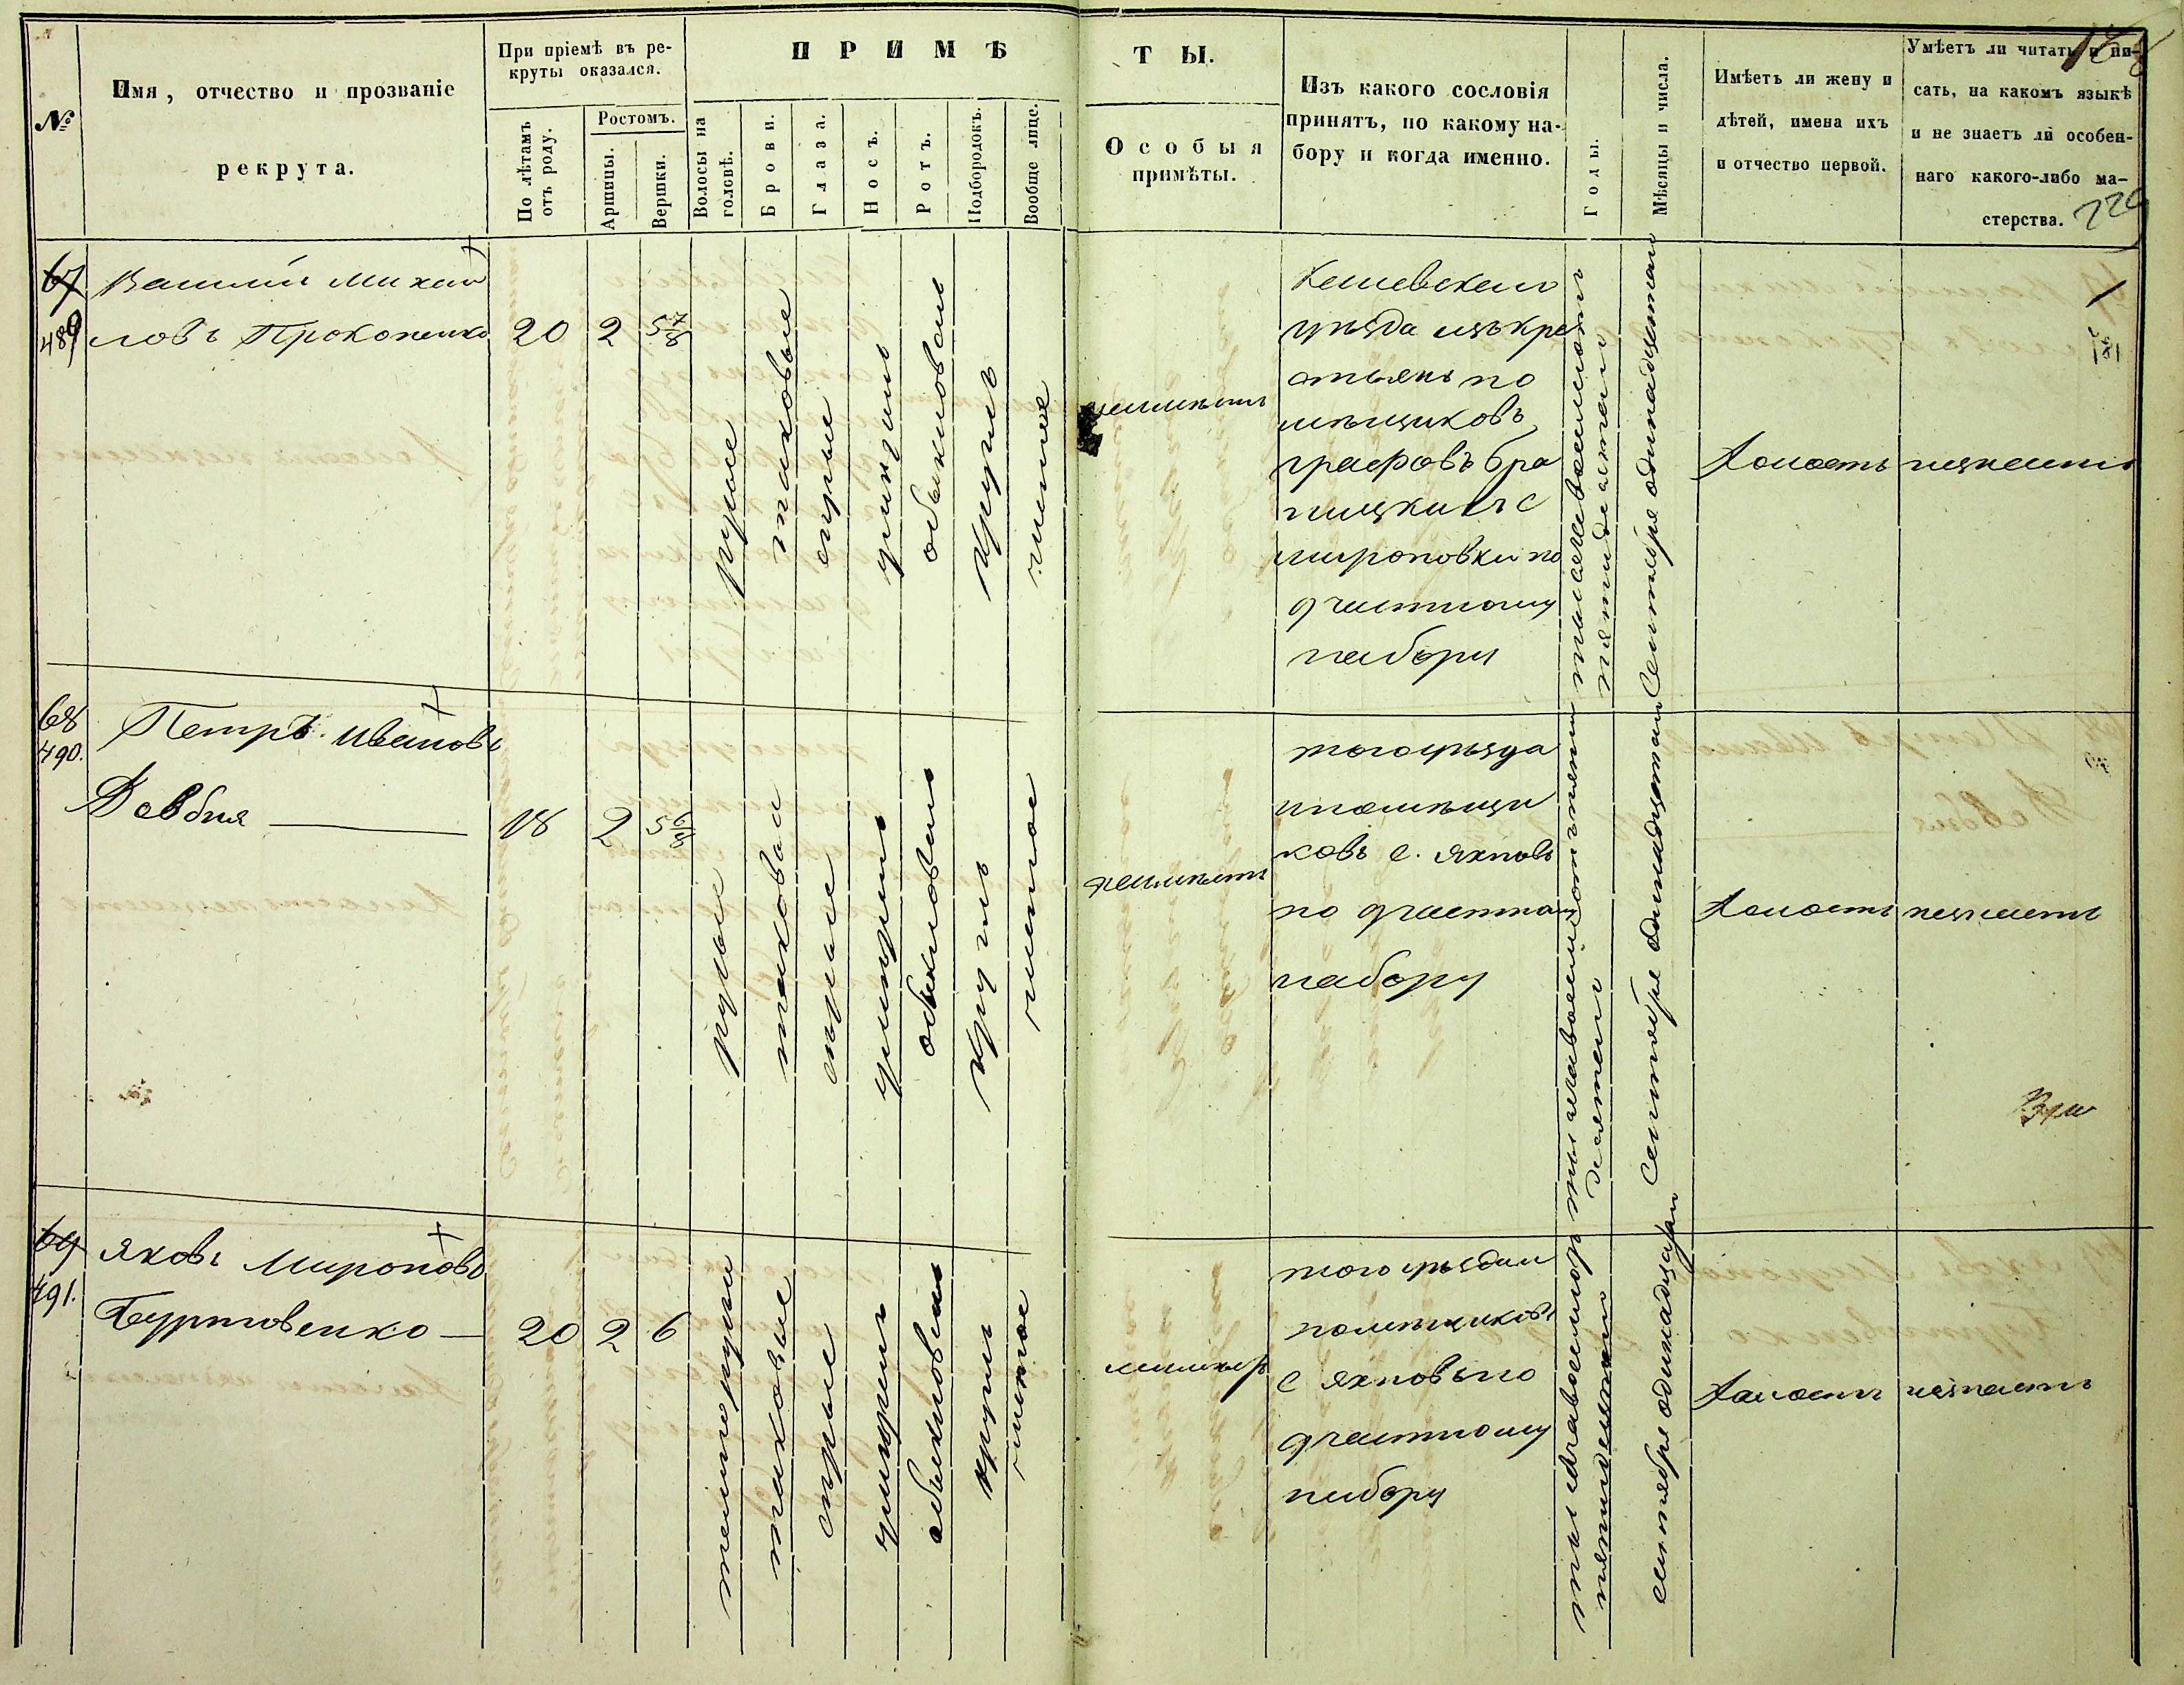 №
Имя, отчество и прозваніе
рекрута.
При пріемѣ въ ре-
круты оказался.
По лѣтамъ
отъ роду.
Ростомъ.
Аршины.
Вершки.
ПРИМѢ
Волосы на
головѣ.
Брови.
Глаза.
Носъ.
Ротъ.
Подбородокъ.
Вообще лице.
ТЫ.
Особыя
примѣты.
Изъ какого сословія
принятъ, по какому на-
бору и когда именно.
Годы.
Мѣсяцы и числа.
Имѣетъ ли жену и
дѣтей, имена ихъ
и отчество первой.
Умѣетъ ли читать и пи-
сать, на какомъ языкѣ
и не знаетъ ли особен-
наго какого-либо ма-
стерства.
67
489
Василій Михай
ловъ Прокопенко
20
2
5 7/8
русые
таковые
серые
умѣренъ
обыкновенъ
круглъ
чистое
неимѣетъ
Кіевскаго
уѣзда изъ кре
стьянъ по
мѣщиковъ
графовъ Бра
ницкихъ с
мироновки по
участному
набору
пятидесятаго
Сентября одинадцатаго
Холостъ
незнаетъ
68
490.
Петръ Ивановъ
Довбня
18
2
5 6/8
русые
таковыи
серые
умѣренъ
обыкновенъ
круглъ
чистое
неимѣетъ
тогоуѣзда
ипомѣщи
ковъ с. Яхновъ
по участному
набору
Сентября одинадцатаго
Холостъ
незнаетъ
69
491.
Яковъ Мироновъ
Буртовенко
20
2
6
темнорусы
таковые
серые
умѣренъ
обыкновенъ
круглъ
чистое
тогоуѣздаи
помѣщиковъ
с Яхновъпо
участному
набору
сентября одинадцатаго
Холостъ
незнаетъ